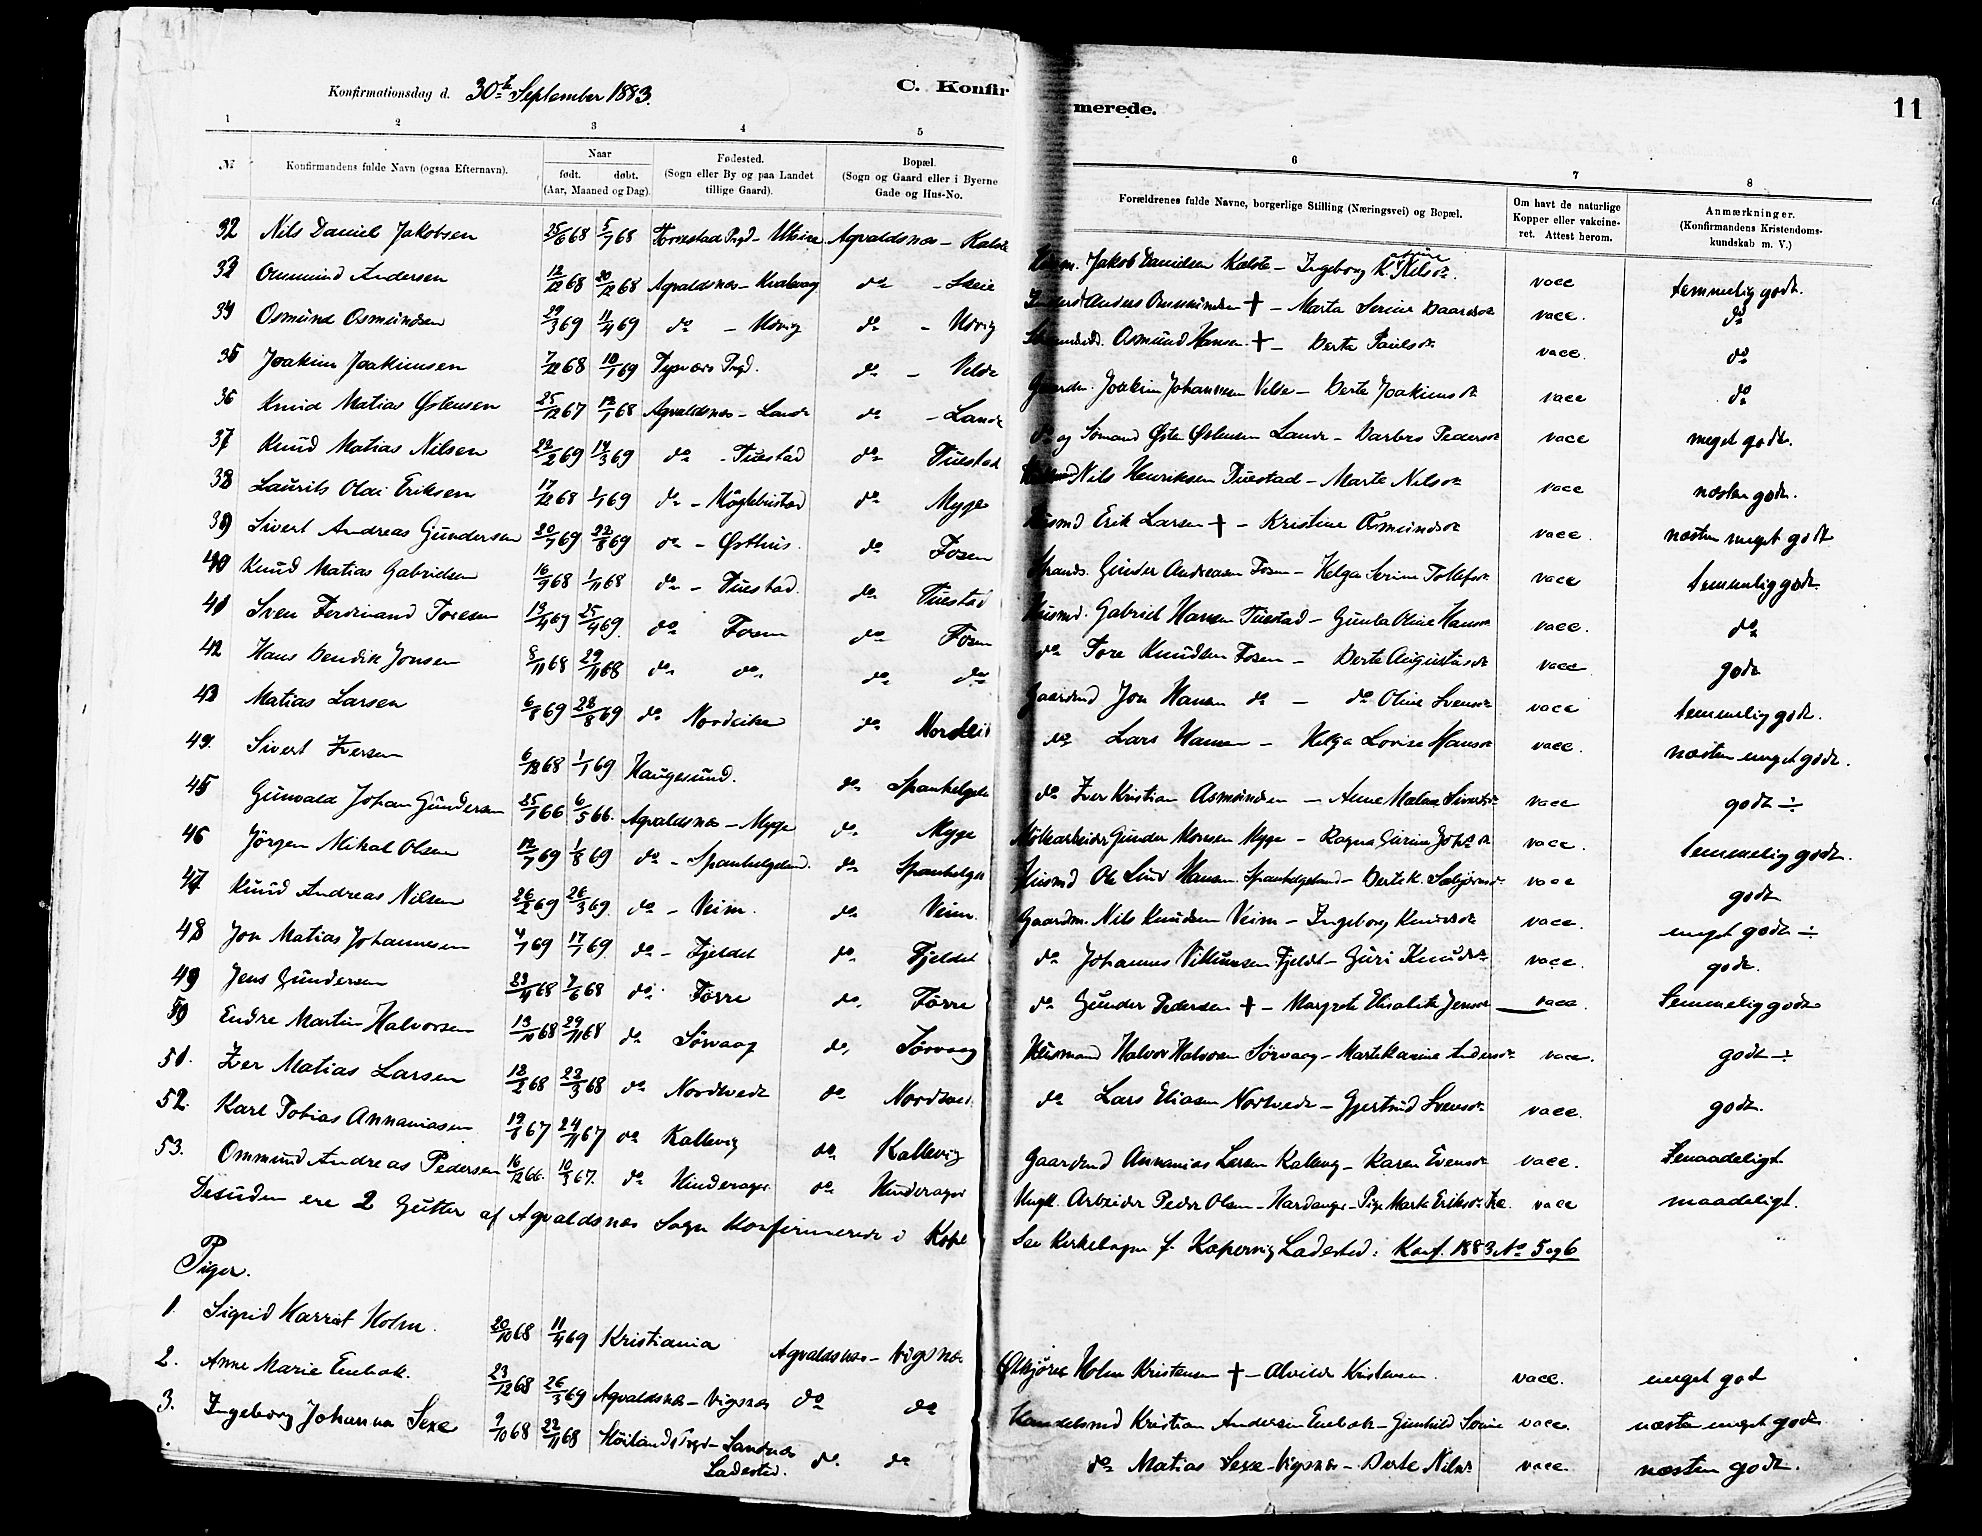 Konfirmationsdag d. 30te September 1883. C. Konfirmerede. 11
1 2 3 4 5 6 7 8
№ Konfirmandens fulde Navn (ogsaa Efternavn). Naar født. døbt. (Aar, Maaned og Dag). Fødested. (Sogn eller By og paa Landet tillige Gaard). Bopæl. (Sogn og Gaard eller i Byerne Gade og Hus-No. Forældrenes fulde Navne, borgerlige Stilling (Næringsvei) og Bopæl. Om havt de naturlige Kopper eller vakcineret. Attest herom. Anmærkninger. (Konfirmandens Kristendomskundskab m. V.)
32 Nils Daniel Jakobsen 25/6 68 5/7 68 Agvaldsnæs - Jakob Danielsen Kalstø - Ingeborg K. Nilsdr. vacc temmelig godt.
33 Ommund Andersen 12/12 68 20/12 68 Agvaldsnæs - Kvalavag do - Skeie Anders Ommundsen † - Marta Serine Baardsdr vacc. do
34 Osmund Osmundsen 29/3 69 11/4 69 do - Udvig do - Udvig Osmund Hansen † - Berta Paulsdr vacc. do
35 Joakim Joakimsen 7/12 68 10/1 69 Tysvær Prgd. do - Velde Gaardm. Joakim Johannesen Velde - Berte Joakimsdr vacc do
36 Knud Matias Østensen 25/12 67 12/1 68 Agvaldsnæs - Lande do - Lande do og Sømand Østen Østensen Lande - Barbro Pedersdr vacc meget godt.
37 Knud Matias Nilsen 22/2 69 14/3 69 do - Tuestad do Tuestad Nils Henriksen Tuestad - Marte Nilsdr vacc næsten godt.
38 Laurits Olai Eriksen 17/12 68 1/1 69 do - Møglebustad do Myge Husmd Erik Larsen † - Kristine Osmundsdr vacc. næsten meget godt
39 Sivert Andreas Gundersen 20/7 69 22/8 69 do - Østhus. do Fosen Strands. Gunder Andreasen Fosen - Helga Serine Tollefsdr vacc temmelig godt.
40 Knud Matias Gabrielsen 16/9 68 1/11 68 do - Tuestad. do Tuestad Husmd. Gabriel Hansen Tuestad - Gunla Oline Hansdr vacc. do
41 Sven Ferdinand Toresen 13/4 69 25/4 69. do Fosen do Fosen do Tore Knudsen Fosen - Berte Augustasdr vacc godt
42 Hans Bendik Jonsen 8/11 68 29/11 68 do do do do Gaardmd Jon Hansen do - do Oline Svensdr vacc temmelig godt.
43 Matias Larsen 6/8 69 28/8 69 do Nordeike do do Lars Hansen - Helga Lovise Hansdr vacc. næsten meget godt.
44. Sivert Iversen 6/12 68 1/1 69 Haugesund. do Spanhelgeld do Iver Kristian Asmundsen - Anne Malene Sivertsdr vacc godt ÷
45 Gunvald Johan Gundersen 25/1 66 6/5 66. Agvaldsnæs - Myge do Myge Gunder Monsen Myge - Ragna Gurine vacc. temmelig godt.
46 Jörgen Mikal Olsen 12/7 69 1/8 69 do - Spanhelgeland. do Spanhelgel Husmd Ole Hansen Spanhelgeland - Berte K. vacc godt
47 Knud Andreas Nilsen 26/2 69 26/3 69. do - Veim. do Veim. Gaardm. Nils Knudsen Veim - Ingeborg Knudsdr vacc. meget godt ÷
48 Jon Matias Johannesen 4/1 69 17/1 69. do - Fjeldet do Fjeldet do Johannes Fjeldt - Guri Knudsdr vacc. godt.
49 Jens Gundersen 23/4 68 7/6 68 do Førre do. Førre do Gunder Pedersen † - Margrete Elisabete Jensdr vacc. temmelig godt
50 Endre Martin Halvorsen 13/10 68 29/11 68 do Sørvaag do, Sørvaag Husmand Halvor Halvorsen Sørvaag - Marte Karine Andersdr vacc. godt ÷
51. Iver Matias Larsen 18/2 68 22/3 68 do Nordtvedt do Nordtved. do Lars Eliasen Nortvedt - Gjertrud Svensdr vacc. godt.
52. Karl Tobias Annaniasen 19/8 67 24/11 67 do Kallevig do. Kallevig Gaardmd Annanias Larsen Kallevig - Karen Evensdr vacc. Temaadeligt
53. Ommund Andreas Pedersen 16/12 66. 10/3 67. do Hinderager do Hinderager Ungk. Arbeider Peder Olsen - Hardanger - Pige Marta Eriksdr vacc maadeligt.
Desuden ere 2 Gutter af Agvaldsnæs Sogn Konfirmerede i Se Kirkebogen f. Kopervig Ladested: Konf. 1883 No 5 og 6
Piger.
1. Sigrid Harriet Holm. 20/10 68 11/4 69 Kristiania Agvaldsnæs - Vigsnæs Holm Kristensen † - Alvilde Kristensen. vacc. meget god
2. Anne Marie Enbok. 23/12 68 26/3 69 Agvaldsnæs - Vigsnæs do do Handelsmd Kristian Andersen Enbok - Gunhild vacc. næsten meget godt
3. Ingeborg Johanna Sexe 9/10 68 22/11 68 Høilands Prgd - Sandnæs Ladested. do. do do Matias Sexe - Vigsnæs - Berte Nilsdr vacc. næsten godt.